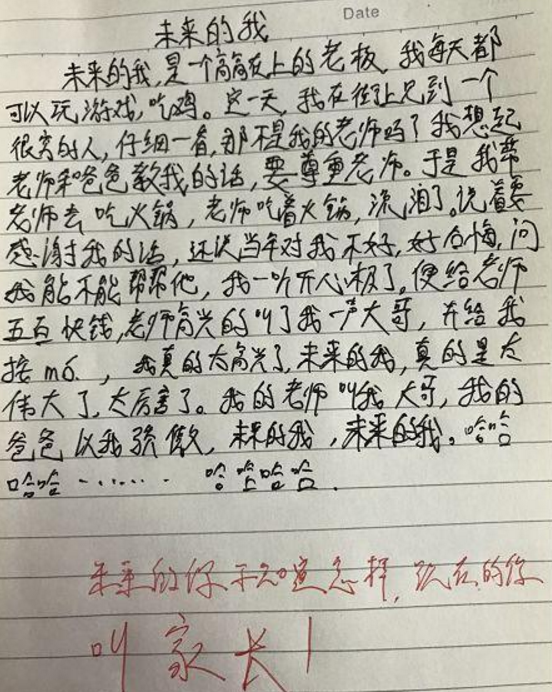 Date
未来的我
未来的我,是一个高高在上的老板,我每天都
可以玩游戏,吃鸡。这一天,我在街上见到一个
很穷的人,仔细一看,那不是我的老师吗?我想起
老师和爸爸教我的话,要尊重老师。于是我带
老师去吃火锅,老师吃着火锅,流泪了。说着要
感谢我的话,还说当年对我不好,好后悔,问
我能不能帮帮他,我一听开心极了。便给老师
五百快钱,老师高兴的叫了我一声大哥,并给我
按m6.,我真的太高兴了,未来的我,真的是太
伟大了,太厉害了。我的老师叫我大哥,我的
爸爸以我骄傲,未来的我,未来的我。哈哈
哈哈……哈哈哈哈.
未来的你不知道怎样,现在的你
叫家长!